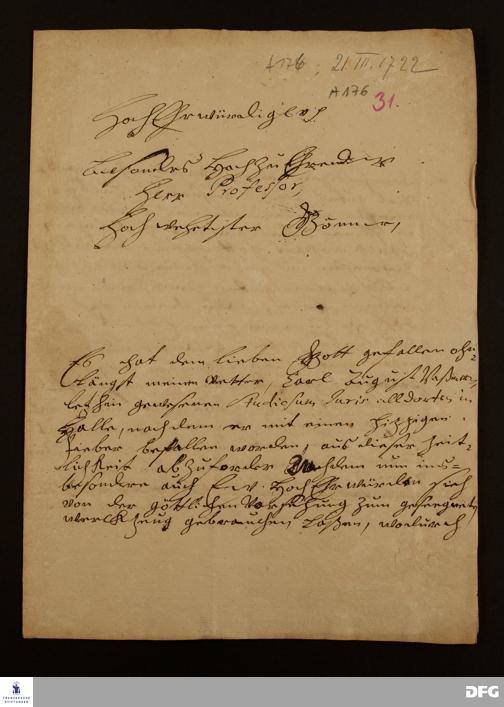 A176 21. III. 1722
A 176
31.
HochEhrwürdiger
besonders Hochzu Ehrender
Herr Professor,
Hochwehrtister Gönner,
Es hat dem lieben Gott gefallen ohn-
längst meinen Vetter, Carl August
gewesenen Studiosum Juris alldorten in
Halle, nachdem er mit einem hitzigen
Fieber befallen worden, aus dieser Zeit-
lichkeit abzufordern. Nachdem nun ins-
besondere auch Ew. HochEhrwürden sich
von der göttlichen Vorsehung zum gesegneten
Werckzeug gebrauchen laßen, wodurch
FRANCKESCHE
STIFTUNGEN
DFG